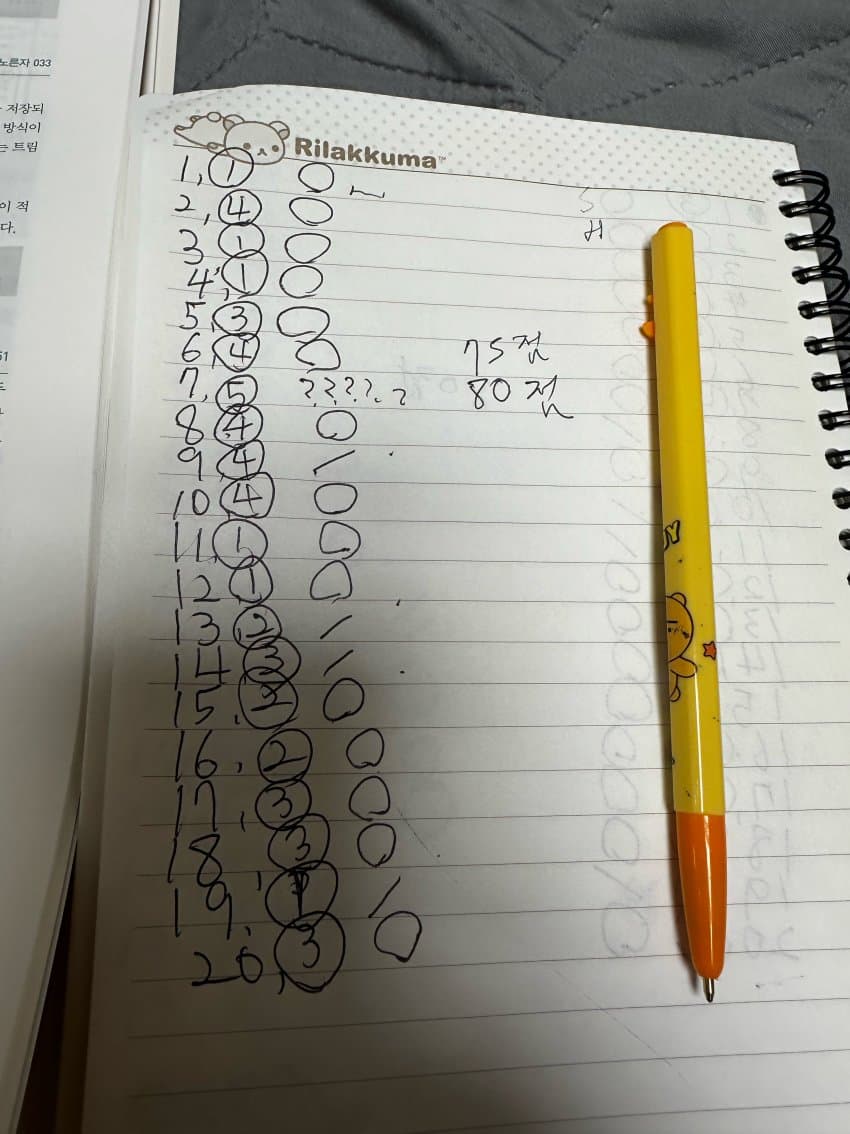 노른자 033
저장되
방식이
는 트림
이 적
다.
51
드
Rilakkuma™
1, ① ○
2, ④ ○
3 ① ○
4, ① ○
5, ③ ○
6, ④ ○
7, ⑤ ?????
8 ④ ○
9 ④ /
10 ④ ○
11, ① ○
12 ① ○
13 ② /
14 ③ /
15, ○
16, ② ○
17, ③ ○
18, ③ ○
19, /
20, ③ ○
75점
80점